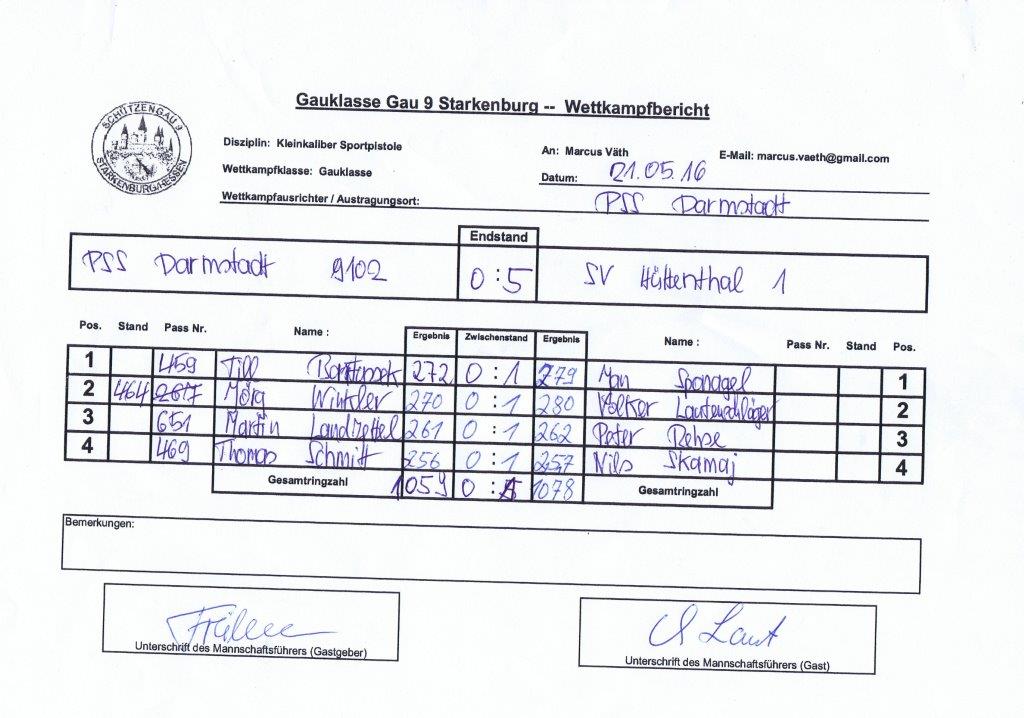 SCHÜTZENGAU 9
STARKENBURG/HESSEN
Gauklasse Gau 9 Starkenburg -- Wettkampfbericht
Disziplin: Kleinkaliber Sportpistole
An: Marcus Väth E-Mail: marcus.vaeth@gmail.com
Wettkampfklasse: Gauklasse
Datum: 21.05.16
Wettkampfausrichter / Austragungsort: PSS Darmstadt
Endstand
PSS Darmstadt 9102 0:5 SV Hüttenthal 1
Pos. Stand Pass Nr. Name : Ergebnis Zwischenstand Ergebnis Name : Pass Nr. Stand Pos.
1 459 Till 272 0:1 279 Spanagel 1
2 464 2617 Winkler 270 0:1 280 Volker Lautenschläger 2
3 651 Martin Landzettel 261 0:1 262 Peter Rehse 3
4 469 Thomas Schmitt 256 0:1 257 Nils Skamaj 4
Gesamtringzahl 1059 0: 1078 Gesamtringzahl
Bemerkungen:
Unterschrift des Mannschaftsführers (Gastgeber)
Unterschrift des Mannschaftsführers (Gast)